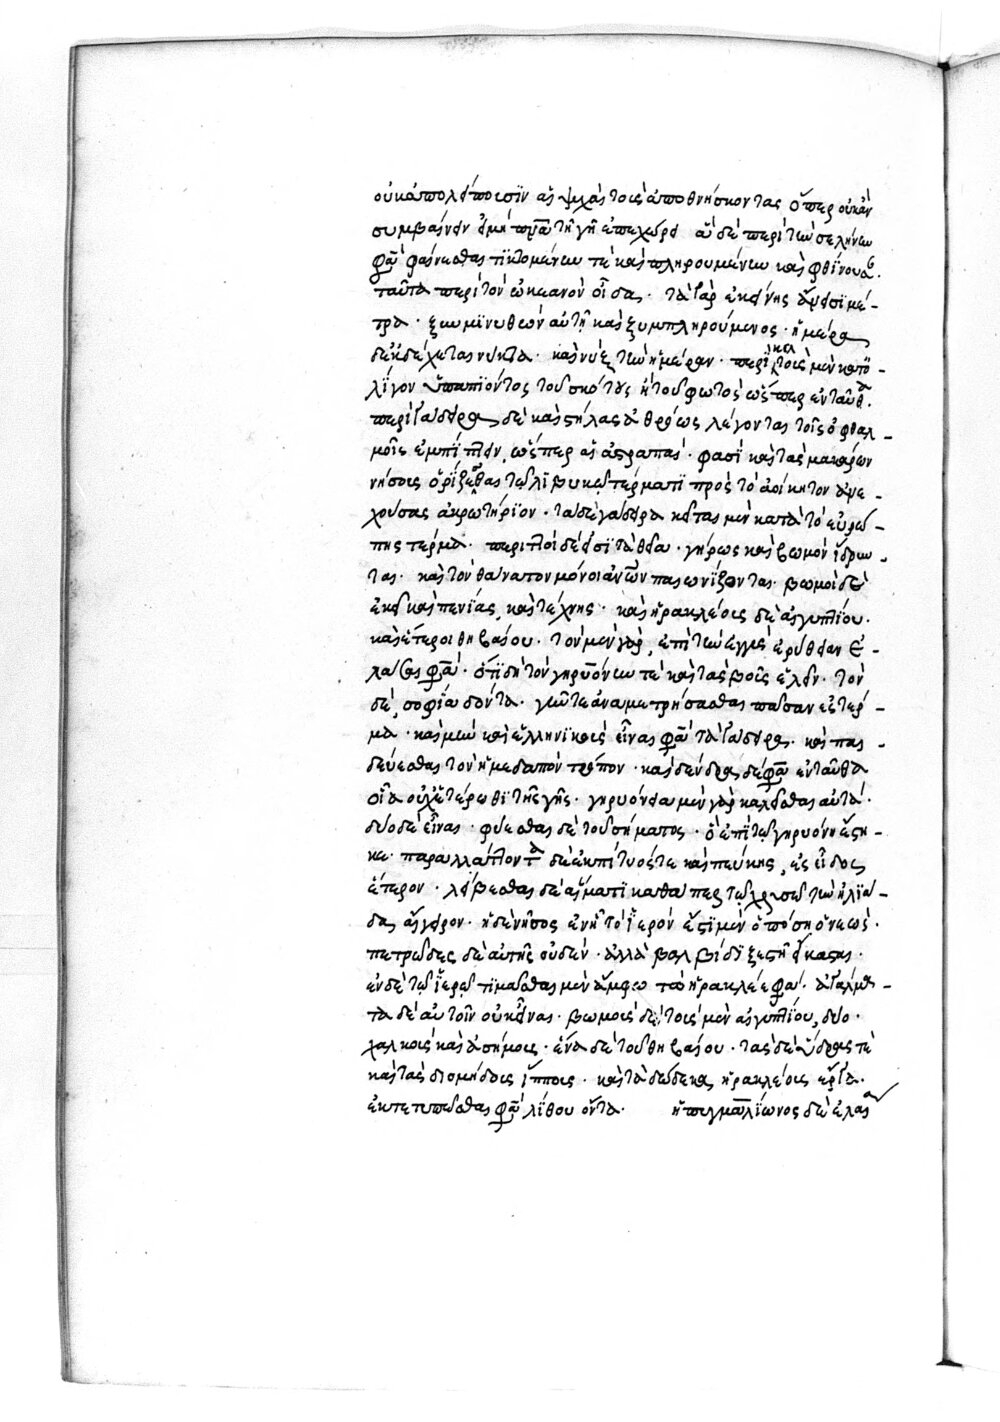 οὐκ ἀπολείπουσιν αἱ ψυχαὶ τοὺς ἀποθνήσκοντας ὅπερ οὐκ ἂν
συμβαίνειν εἰ μὴ πνεῦμα τῇ γῇ ἐπεχώρει αἱ δὲ περὶ τὴν σελήνην
φασὶ φαίνεσθαι τικτομένην τε καὶ πληρουμένην καὶ φθίνουσαν.
ταῦτα περὶ τὸν ὠκεανὸν οἶδα. τὰ γὰρ ἐκείνης ἄνεισι μέ-
τρα. ξυμμινύθων αὐτῇ καὶ ξυμπληρούμενος. ἡμέρα
δ' ἐκδέχεται νύκτα. καὶ νὺξ τὴν ἡμέραν. περὶ κελτοὺς μὲν κατ' ὀ-
λίγον ὑπαπιόντος τοῦ σκότους ἢ τοῦ φωτὸς ὥσπερ ἐνταῦθα.
περὶ γάδειρα δὲ καὶ στήλας ἀθρόως λέγονται τοῖς ὀφθαλ-
μοῖς ἐμπίπτειν, ὥσπερ αἱ ἀστραπαί. φασὶ καὶ τὰς μακάρων
νήσους ὁρίζεσθαι τῷ λιβυκῷ τέρματι πρὸς τὸ ἀοίκητον ἀνε-
χούσας ἀκρωτήριον. τὰ δὲ γάδειρα κεῖται μὲν κατὰ τὸ εὐρώ-
πης τέρμα. περιττοὶ δέ εἰσι τὰ θεῖα. γήρως καὶ βωμὸν ἵδρυν-
ται. καὶ τὸν θάνατον μόνοι ἀνθρώπων παιωνίζονται. βωμοὶ δὲ
ἐκεῖ καὶ πενίας, καὶ τέχνης. καὶ ἡρακλέους δὲ αἰγυπτίου.
καὶ ἕτεροι θηβαίου. τὸν μὲν γὰρ, ἐπὶ τὴν ἐγγὺς ἐρύθειαν ἐ-
λάσαι φασίν. ὅτε δὴ τὸν γηρυόνην τε καὶ τὰς βοῦς ἑλεῖν. τὸν
δὲ, σοφίᾳ δόντα. γῆν τε ἀναμετρήσασθαι πᾶσαν ἐς τέρ-
μα. καὶ μὴν καὶ ἑλληνικοὺς εἶναι φασὶ τὰ γάδειρα. καὶ παι-
δεύεσθαι τὸν ἡμεδαπὸν τρόπον. καὶ δένδρα δέ φασιν ἐνταῦθα
οἷα οὐχ ἑτέρωθι τῆς γῆς. γηρυόνεια μὲν γὰρ καλεῖσθαι αὐτά.
δύο δὲ εἶναι. φύεσθαι δὲ τοῦ σήματος. ὃ ἐπὶ τῷ γηρυόνῃ ἕστη-
κε. παραλλάττοντα δὲ ἐκ πίτυός τε καὶ πεύκης, ἐς εἶδος
ἕτερον. λείβεσθαι δὲ αἵματι καθάπερ τῷ χρυσῷ τὴν ἡλιά-
δα αἴγειρον. ἡ δὲ νῆσος ἐν ᾗ τὸ ἱερόν ἐστι μὲν ὁπόση ὁ νεώς.
πετρῶδες δὲ αὐτῆς οὐδέν. ἀλλὰ βαλβίδι ξεστῇ εἴκασται.
ἐν δὲ τῷ ἱερῷ τιμᾶσθαι μὲν ἄμφω τὼ ἡρακλέε φασίν. ἀγάλμα-
τα δὲ αὐτοῖν οὐκ εἶναι. βωμοὺς δὲ τοὺς μὲν αἰγυπτίου, δύο.
χαλκοῦς καὶ ἀσήμους. ἕνα δὲ τοῦ θηβαίου. τὰς δὲ ὕδρας τὲ
καὶ τὰς διομήδους ἵππους. καὶ τὰ δώδεκα ἡρακλέους ἔργα.
ἐκτετυπῶσθαι φασὶ λίθου ὄντα. ἡ πυγμαλίωνος δὲ ἐλαία